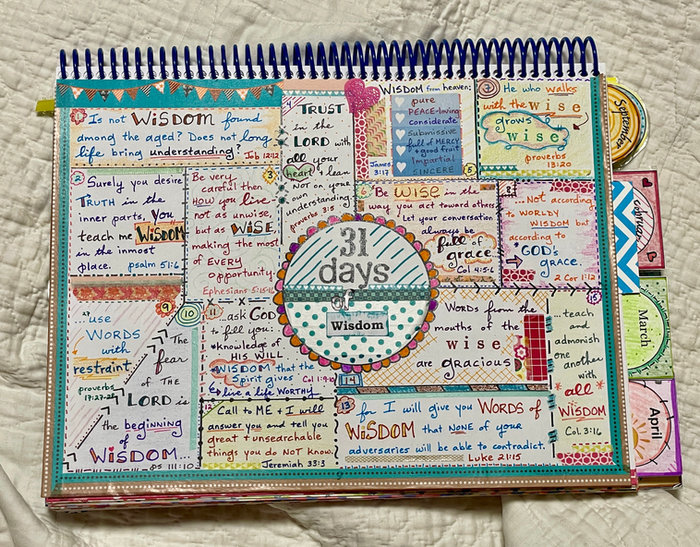 1 Is not WISDOM found
among the aged? Does not long
life bring understanding?
Job 12:12
2 Surely you desire
TRUTH in the
inner parts, you
teach me WISDOM
in the inmost
place. psalm 51:6
3
Be very
careful then
HOW you live
not as unwise,
but as WISE,
making the most
of EVERY
opportunity.
Ephesians 5:15-16
4
TRUST
in the
LORD with
all your
heart & lean
Not on your
own
understanding
Proverbs 3:5
WISDOM from heaven:
pure
PEACE-loving
considerate
submissive
full of MERCY
& good fruit
Impartial
SINCERE
James
3:17
5
6 Be WISE in the
way you act toward others
Let your conversation
always be
full of
grace.
Col 4:5-6
7
He who walks
with the wise
grows
wise.
proverbs
13:20
8
...Not according
to WORLDY
WISDOM but
according to
GOD's
GRACE.
2 Cor 1:12
31
days
of
Wisdom
9
...use
WORDS
with
restraint
proverbs
17:27-28
10
The
fear
of THE
LORD is
the beginning
of
WISDOM...
ps 111:10
11
...ask GOD
to fill you:
knowledge of
HIS WILL
WISDOM that the
Spirit gives Col 1:9-10
live a life WORTHY
12 Call to ME & I will
answer you and tell you
great & unsearchable
things you do NOT know.
Jeremiah 33:3
WORDS from the
mouths of the
wise
are gracious
14
13 for I will give you WORDS OF
WISDOM that NONE of your
adversaries will be able to contradict.
Luke 21:15
15
...teach
and
admonish
one
another
with
all
WISDOM
Col. 3:16
September
February
March
April